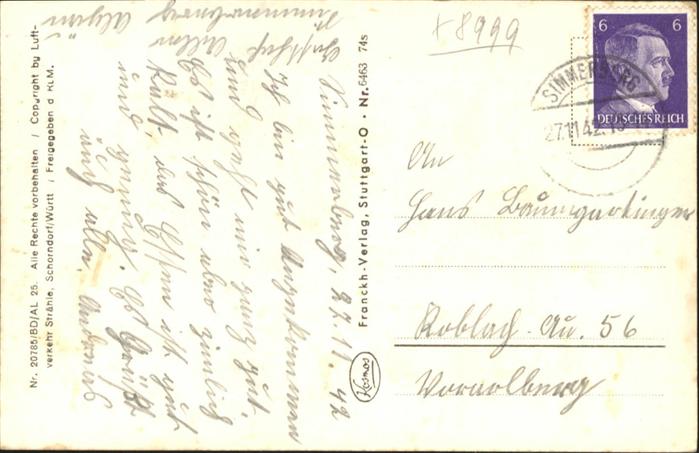 Nr. 20785/BD/AL 25. Alle Rechte vorbehalten / Copyright by Luft-
verkehr Strähle, Schorndorf/Württ / Freigegeben d RLM.
Simmerberg, 27.11.42
Ich bin gut Angekommen
und geht mir ganz gut.
Es ist schön aber zimlich
Kalt, das Essen ist gut
und genug. Es Grüßt
euch alle. Andreas
Gasthof Adler
Simmerberg Allgäu
Franckh-Verlag, Stuttgart-O • Nr. 6463 74s
Kosmos
+ 8999
6 6
DEUTSCHES REICH
SIMMERBERG
27.11.42
An
Hans Baumgartinger
Koblach-Au. 56
Vorarlberg